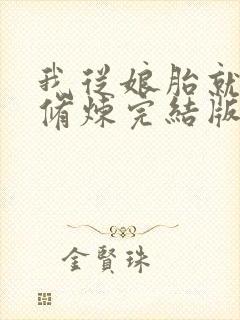 我從娘胎就
脩煉完結版
金賢珠